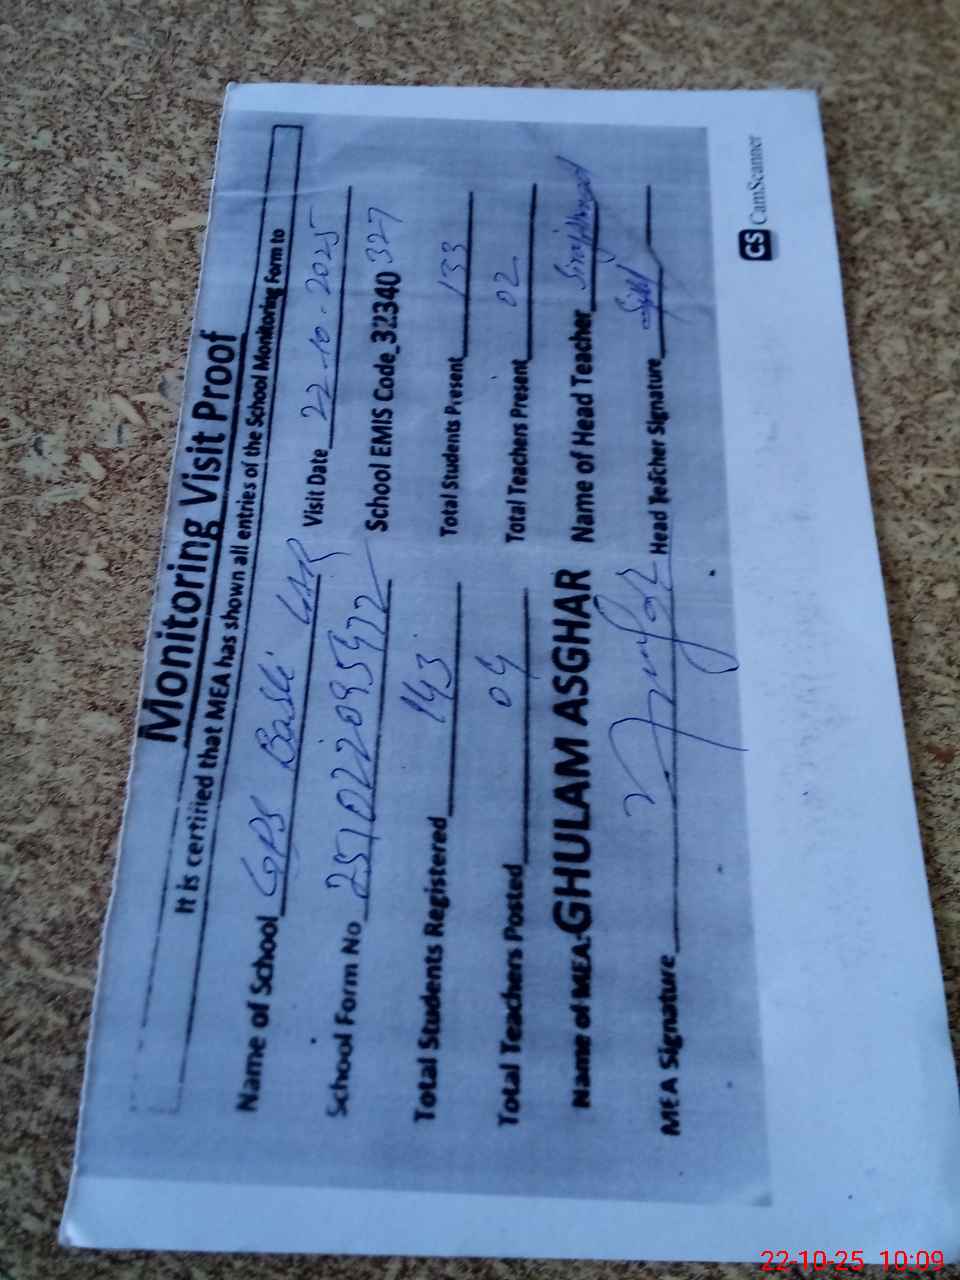 Monitoring Visit Proof
It is certified that MEA has shown all entries of the School Monitoring Form to
Name of School GPS Basti Visit Date 22-10-2025
School Form No 251022095472 School EMIS Code 32340327
Total Students Registered 143 Total Students Present 133
Total Teachers Posted 04 Total Teachers Present 02
Name of MEA: GHULAM ASGHAR Name of Head Teacher Siraj Ahmad
MEA Signature Head Teacher Signature
CS CamScanner
22-10-25 10:09